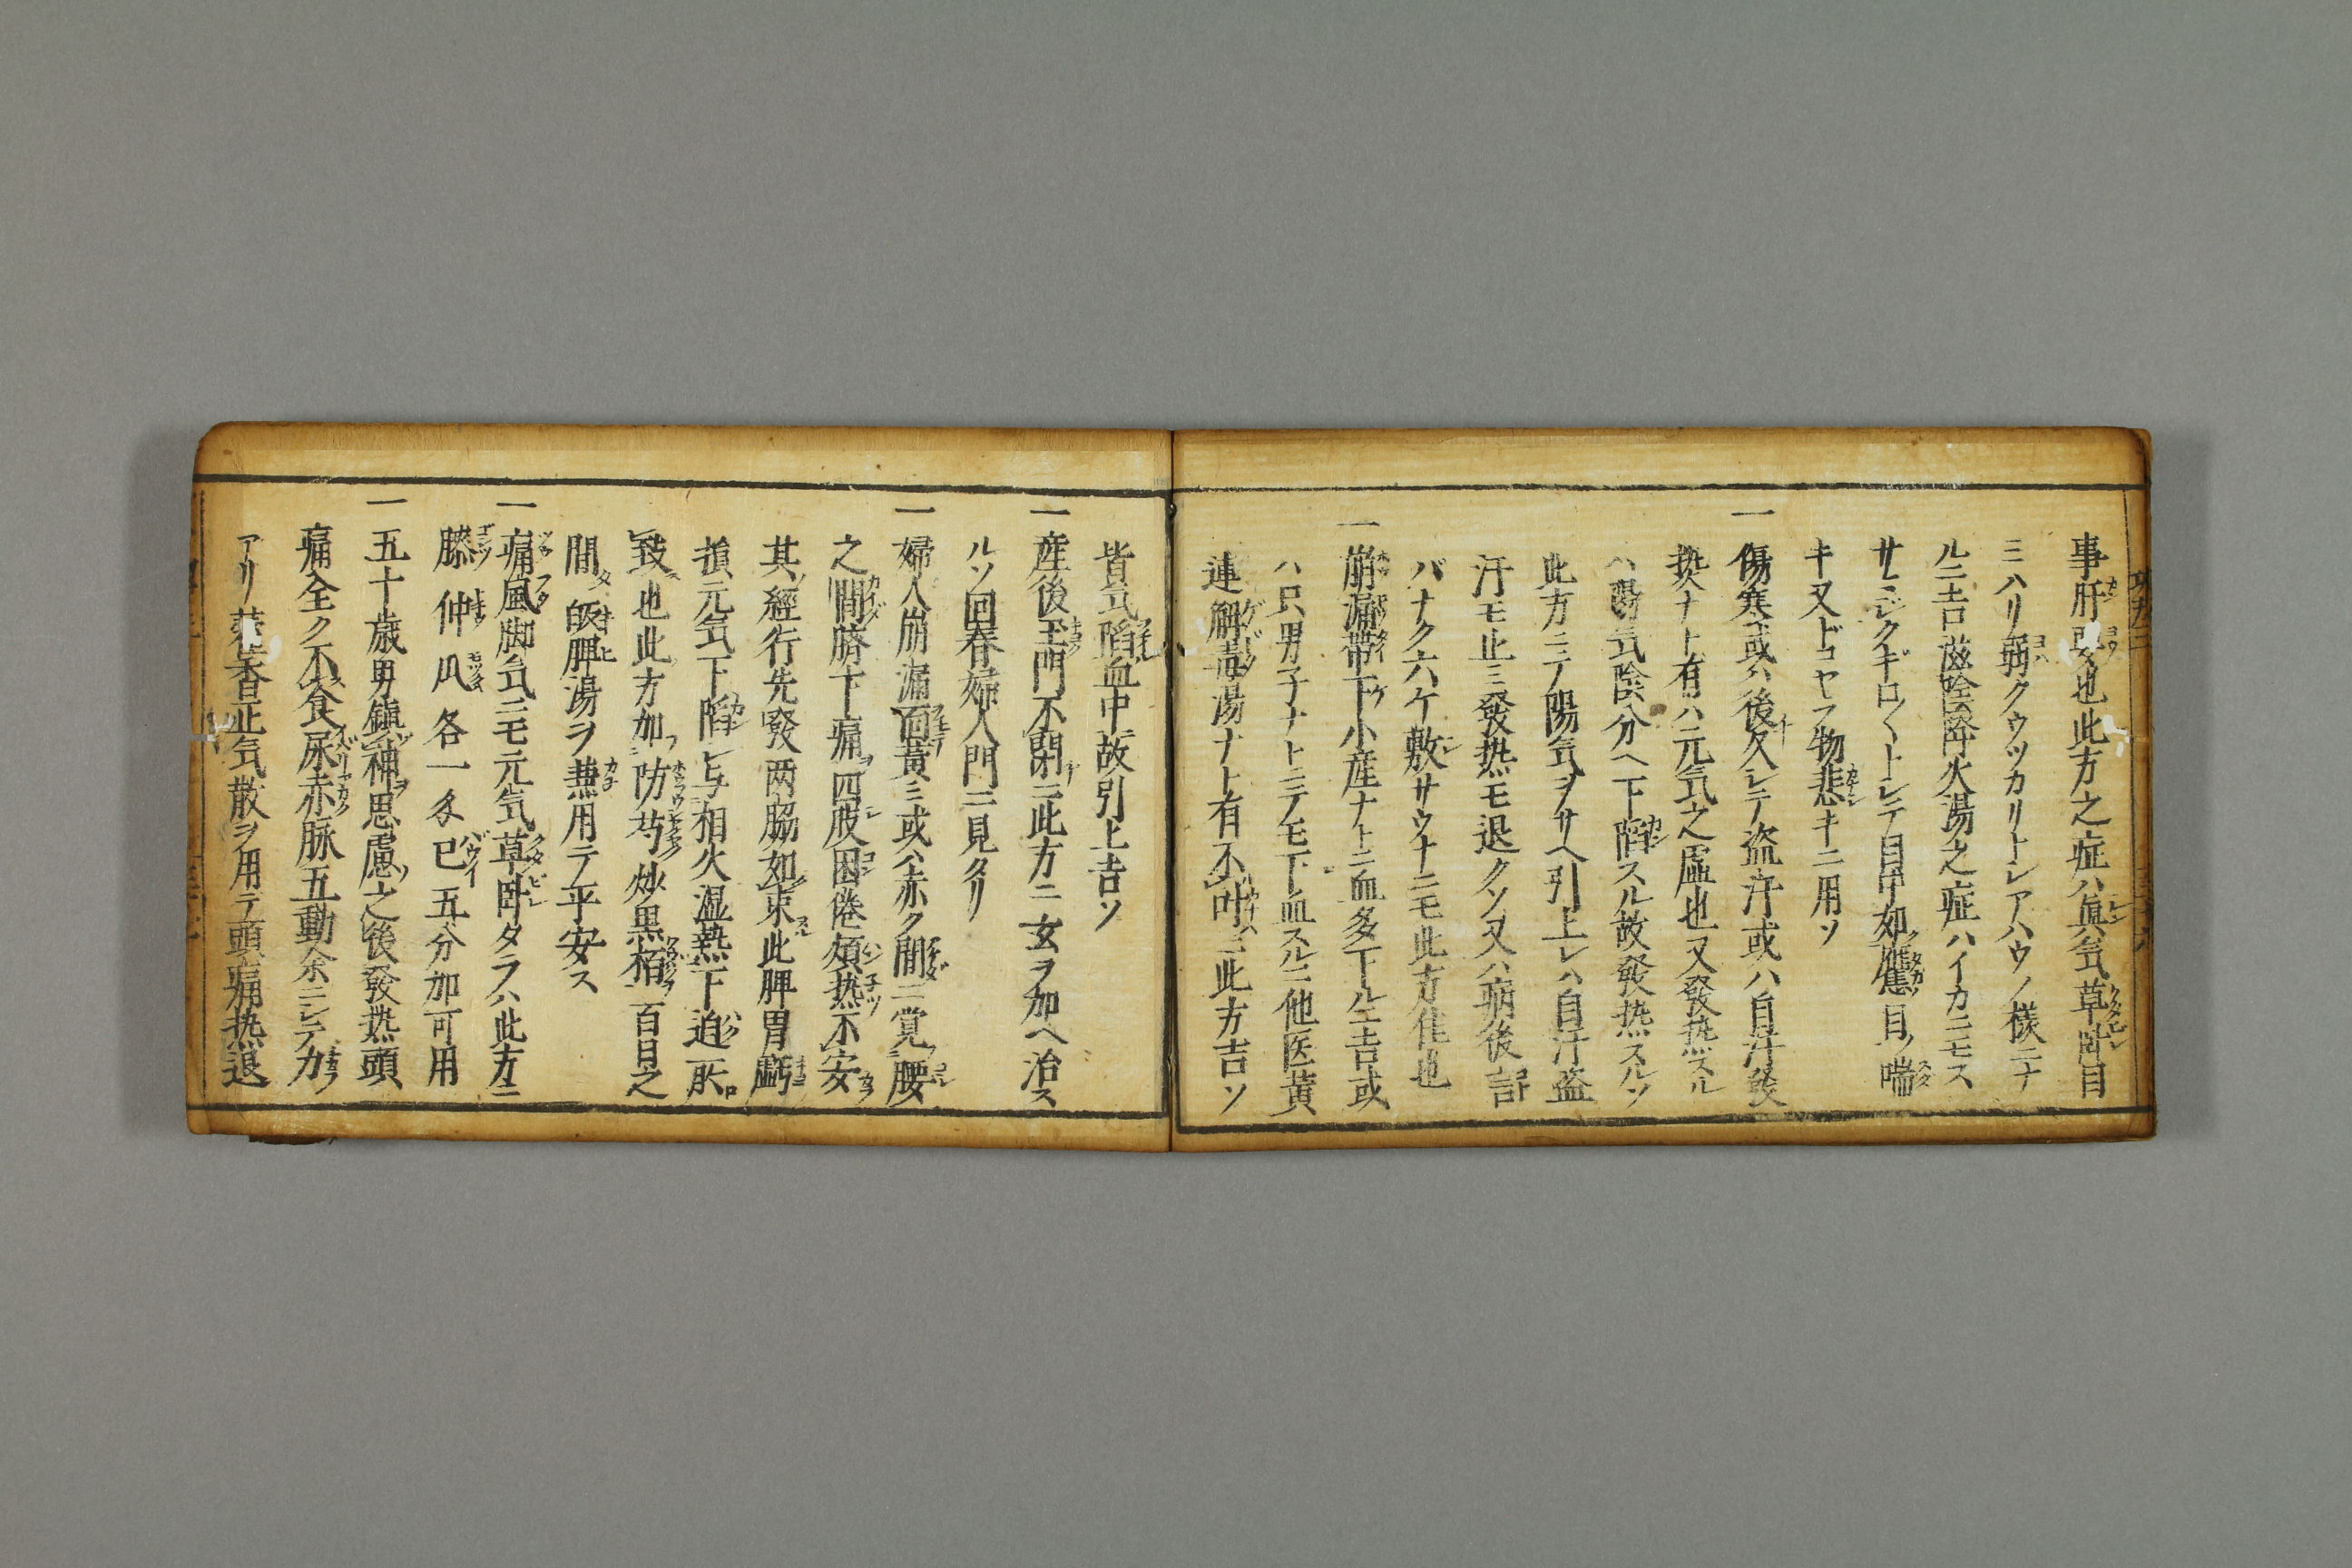 事肝要也此方之症ハ眞気草臥目
ミハリ弱クウツカリトシアハウノ様ニナ
ルニ吉滋陰降火湯之症ハイカニモス
サミシクギロ〳〵トシテ目中如鷹目ノ喘
キ又ドコヤラ物悲キニ用ソ
一傷寒或ハ後久シテ盗汗或ハ自汗発
热ナト有ハ元気之虚也又發热スル
ハ陽気陰分ヘ下陷スル故發热スルソ
此方ニテ陽気ヲサヘ引上レハ自汗盗
汗モ止ミ發热モ退クソ又ハ病後言
バナク六ケ敷サウナニモ此方佳也
一崩漏帯下小産ナトニ血多下ルニ吉或
ハ只男子ナトニテモ下血スルニ他医黄
連解毒湯ナト有不叶ニ此方吉ソ
皆気陷血中故引上吉ソ
一産後玉門不閉ニ此方ニ玄ヲ加ヘ治ス
ルソ回春婦人門ニ見タリ
一婦人崩漏面黃ミ或ハ赤ク間ニ覚腰
之間臍下痛四肢困倦煩热不安
其經行先發两脇如束此脾胃虧
損元気下陷シ与相火湿熱下迫所
致也此方加防芍炒黒栢一百日之
間皈脾湯ヲ兼用テ平安ス
一痛風脚気ニモ元気草臥タラハ此方ニ
膝仲瓜各一匁已五分加可用
一五十歳男鎮神思慮之後發热頭
痛全ク不食尿赤脉五動余ニシテ力
アリ藿香正気散ヲ用テ頭痛热退